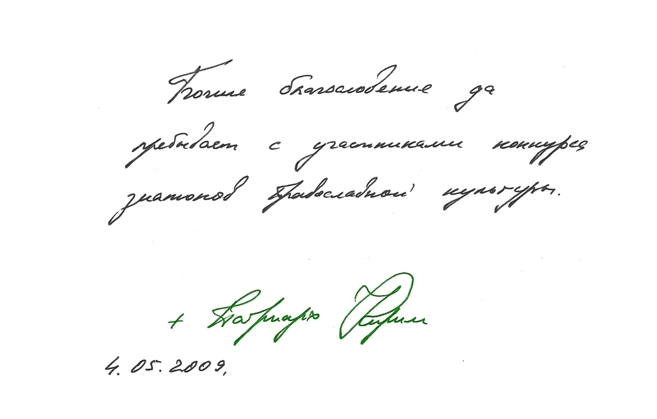 Божие благословение да
пребывает с участниками конкурса
знатоков Православной культуры.
+ Патриарх Кирилл
4.05.2009.